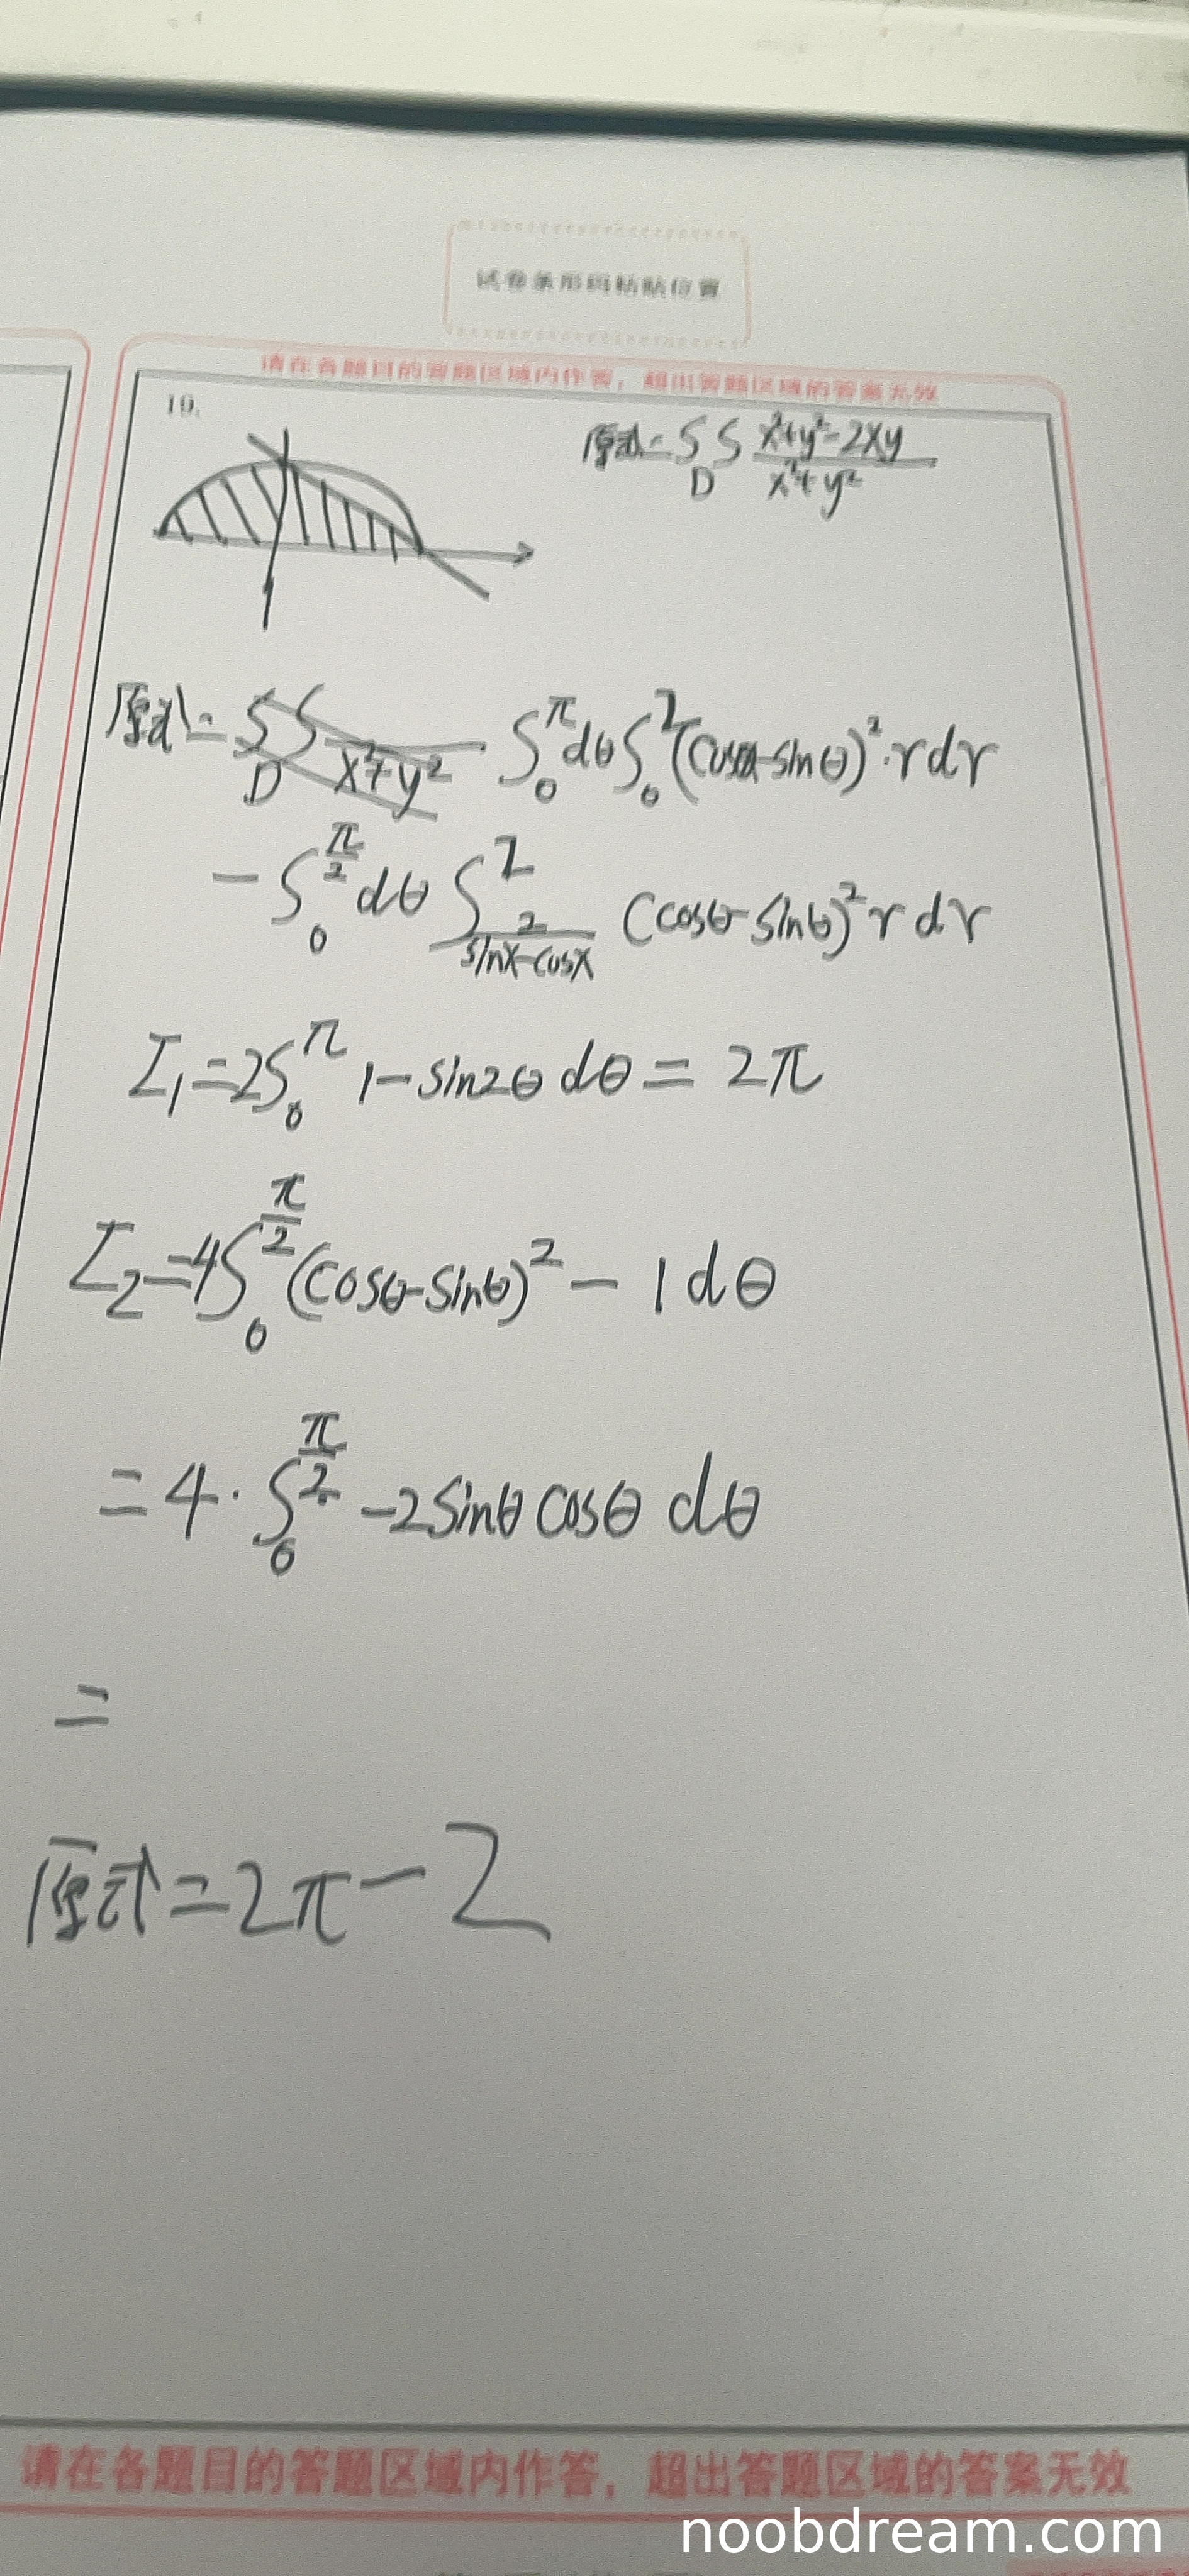 试卷条形码粘贴位置
请在各题目的答题区域内作答，超出答题区域的答案无效
19.
原式=∫∫_D (x²+y²-2xy)/(x²+y²)
原式= ∫₀^π dθ ∫₀² (cosθ-sinθ)²·r dr
- ∫₀^(π/2) dθ ∫_(2/(sinx-cosx))^2 (cosθ-sinθ)² r dr
I₁=2∫₀^π 1-sin2θ dθ = 2π
I₂=4∫₀^(π/2) (cosθ-sinθ)² - 1 dθ
= 4·∫₀^(π/2) -2sinθcosθ dθ
=
原式=2π-2
请在各题目的答题区域内作答，超出答题区域的答案无效
noobdream.com